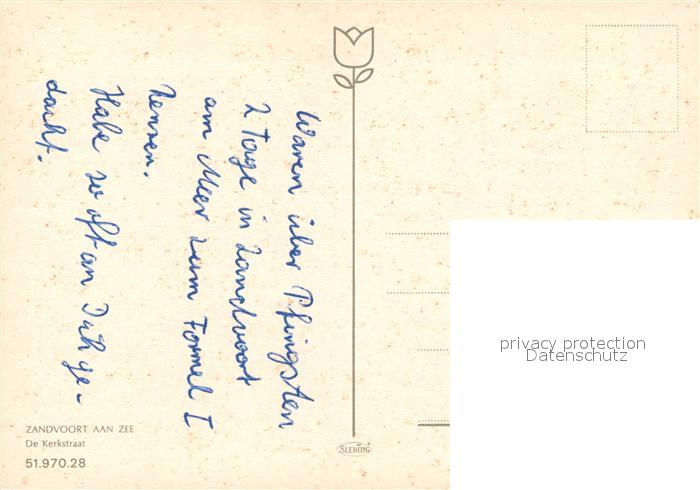 Waren über Pfingsten
2 Tage in Zandvoort
am Meer zum Formel I
Rennen.
Habe so oft an Dich ge-
dacht.
ZANDVOORT AAN ZEE
De Kerkstraat
51.970.28
SLEDING
privacy protection
Datenschutz